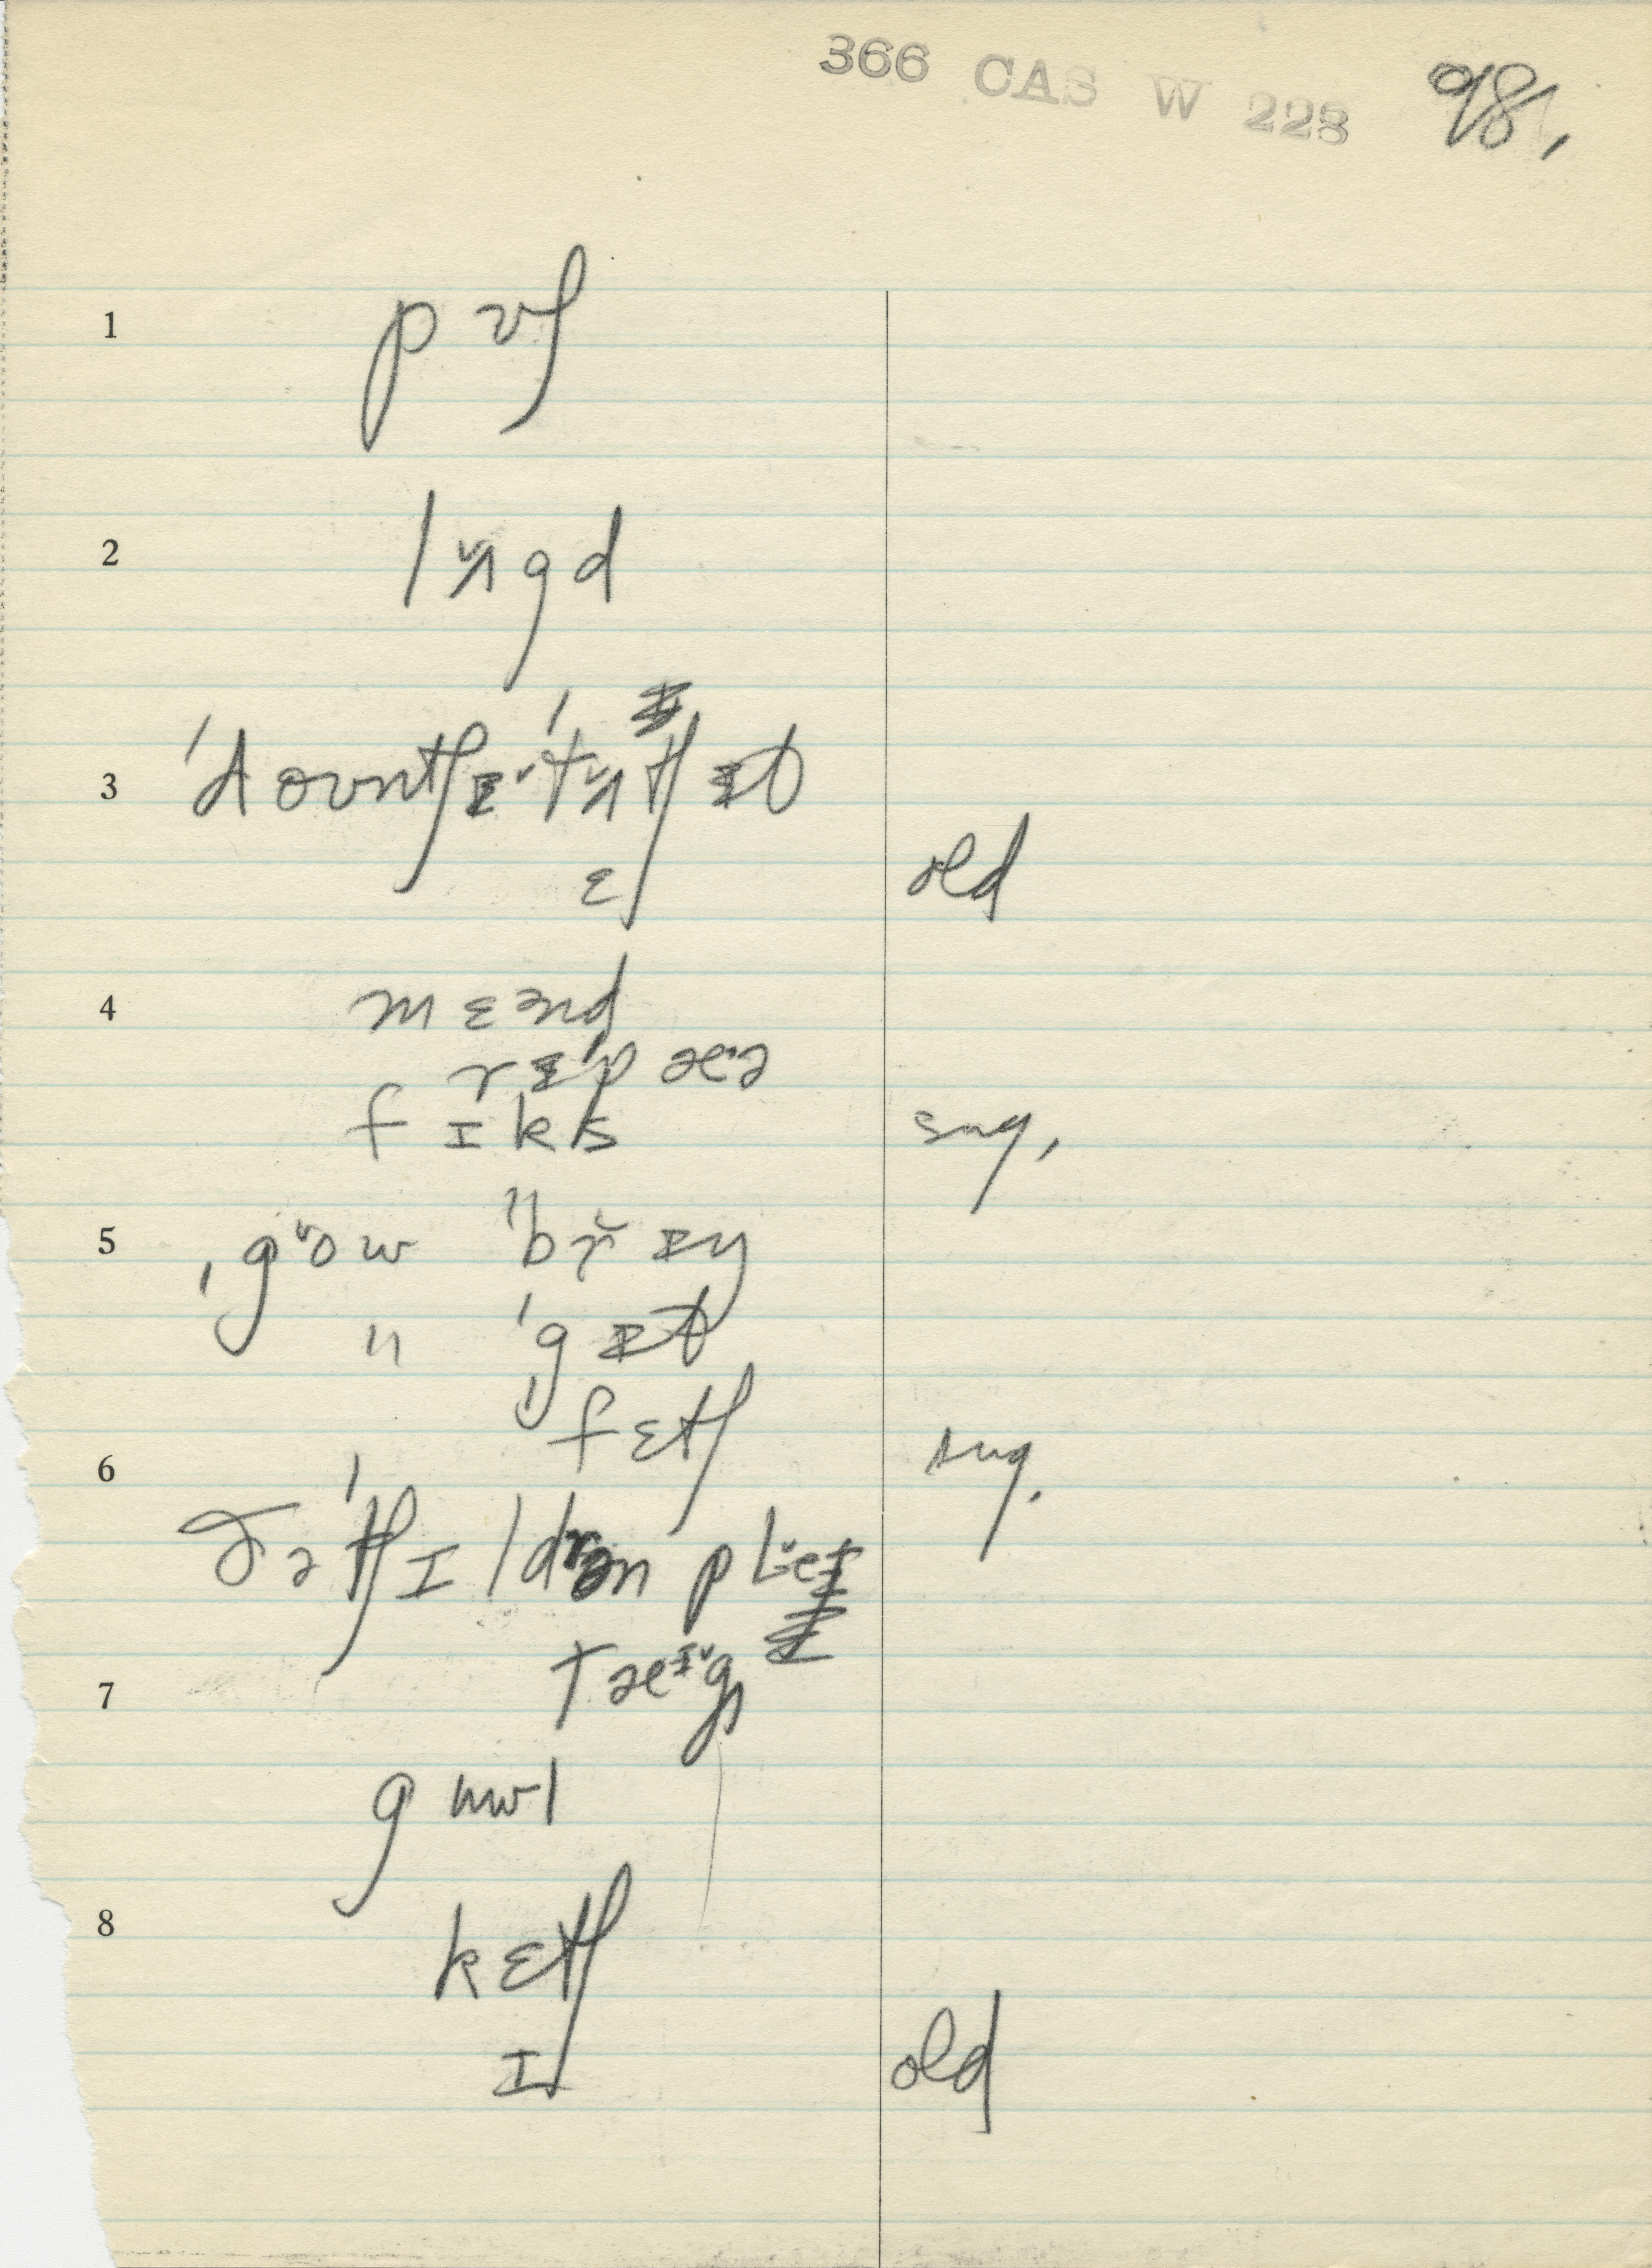 366 CAS W 228 98,
1 pʊʃ
2 lʌgd
3 'dount ʃɪ 'tʌtʃ ɪt
ɛ old
4 mɛənd
rɪ'pæə
fɪks sug,
5 ˌgow "brɪŋ
" 'gɪt
fɛtʃ sug.
6 ðə 'tʃɪldrən pleɪ
7 tæɪg
guwl
8 kɛtʃ
ɪ old